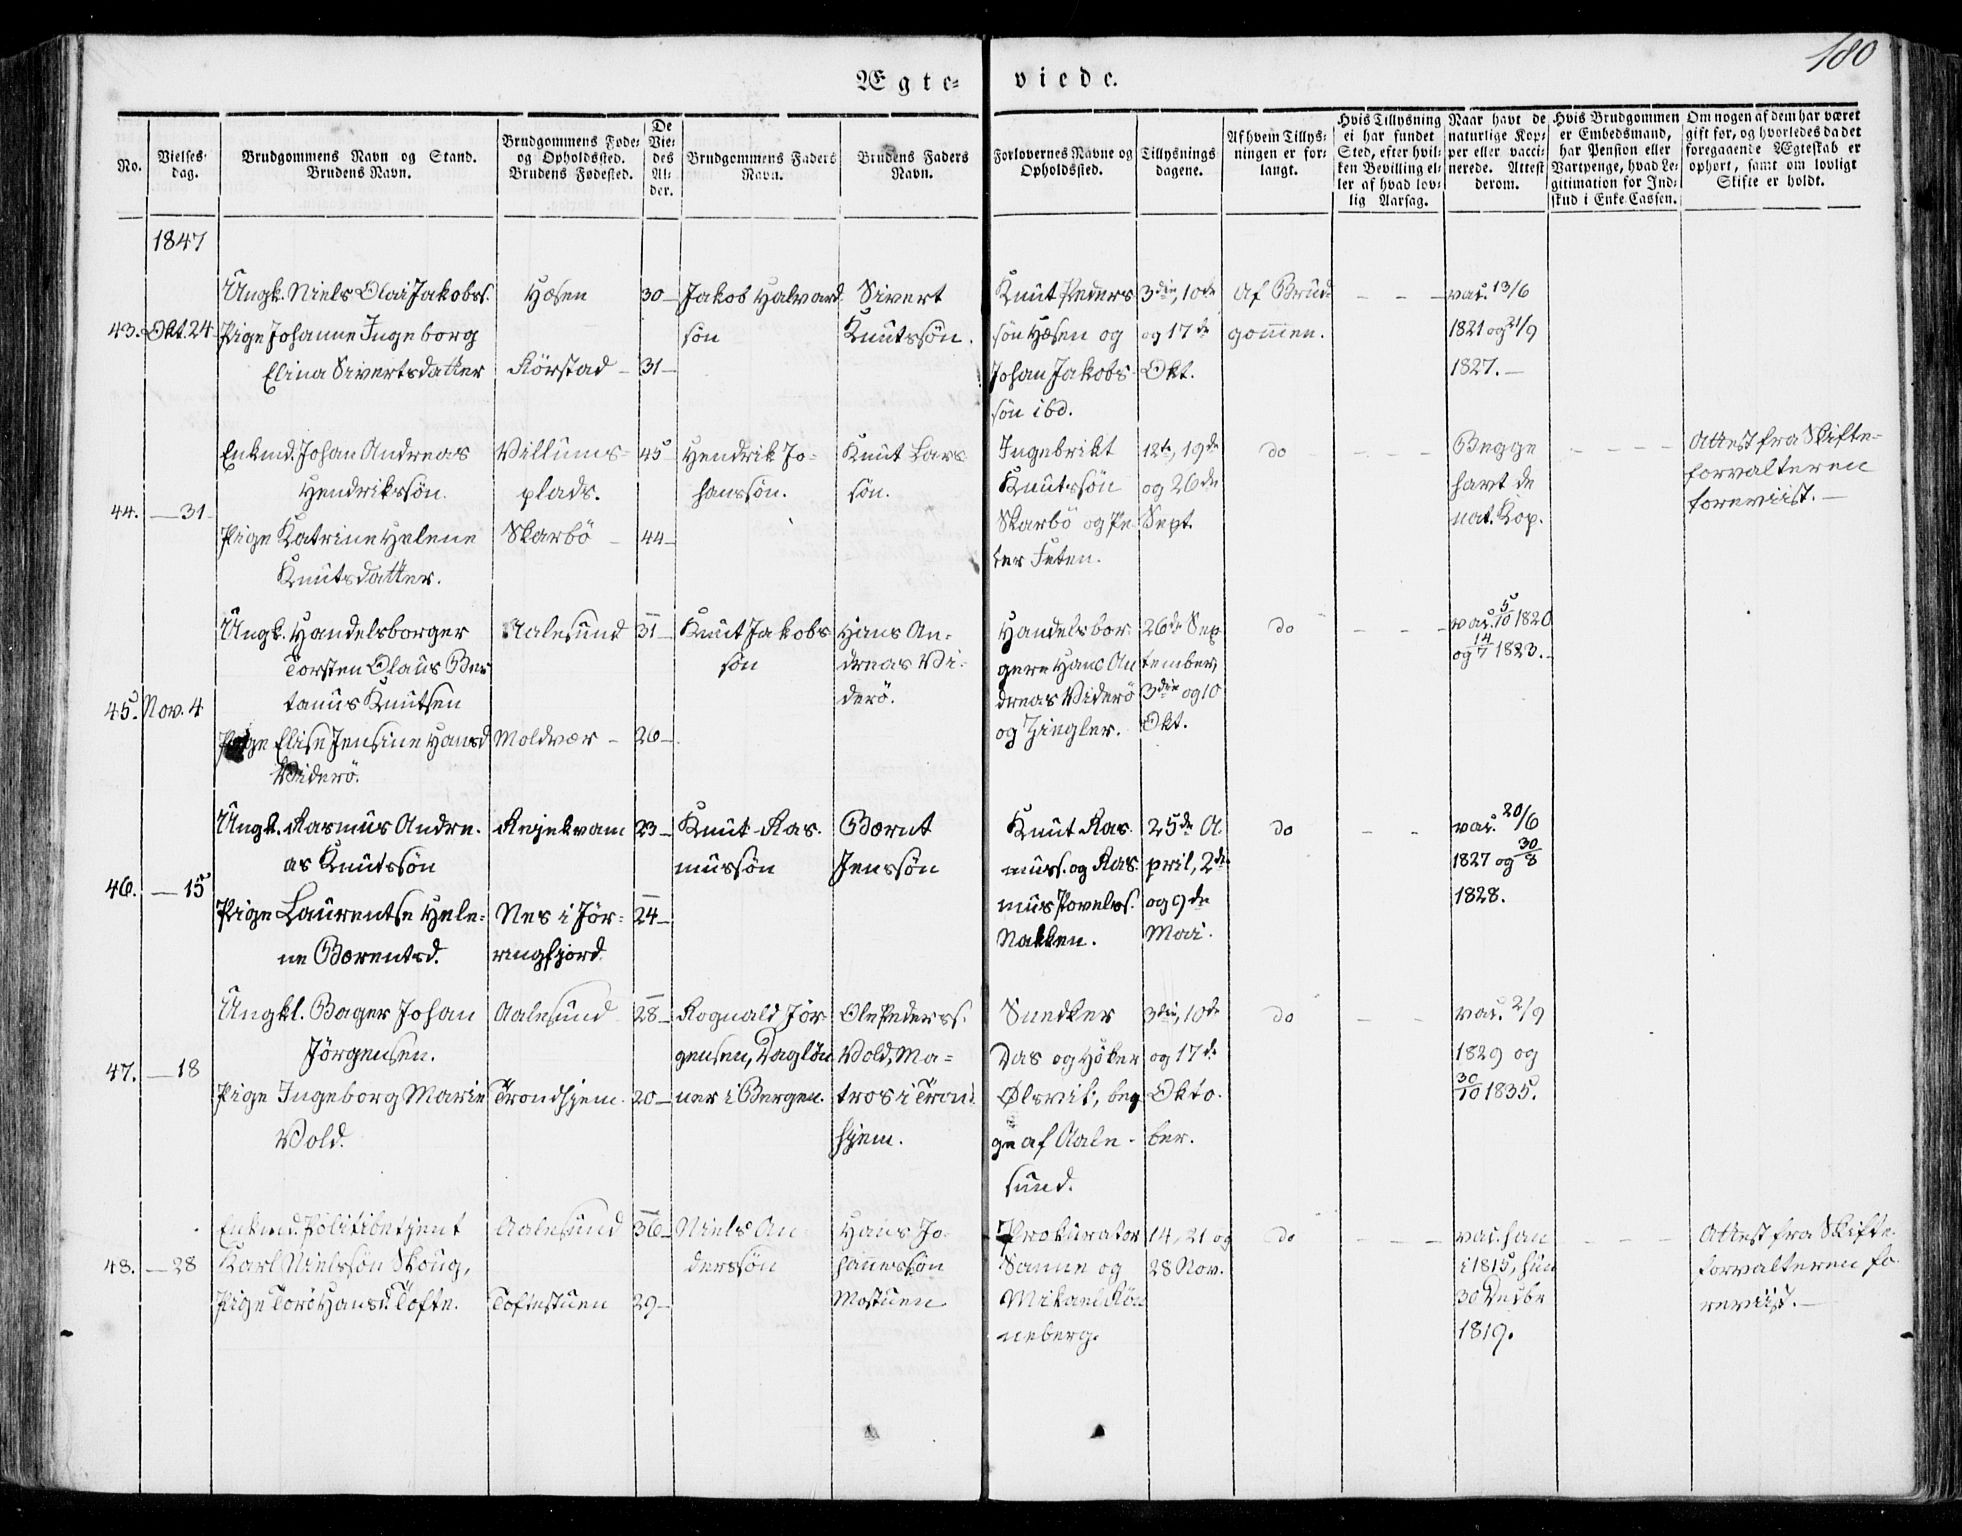 180
Ægte- viede.
No.
Vielses-
dag.
Brudgommens Navn og Stand.
Brudens Navn.
Brudgommens Føde-
og Opholdssted.
Brudens Fødested.
De
Vie-
des
Al-
der.
Brudgommens Faders
Navn.
Brudens Faders
Navn.
Forlovernes Navne og
Opholdssted.
Tillysnings
dagene.
Af hvem Tillys-
ningen er for-
langt.
Hvis Tillysning
ei har fundet
Sted, efter hvil-
ken Bevilling el-
ler af hvad lov-
lig Aarsag.
Naar havt de
naturlige Kop-
per eller vacci-
nerede. Attest
derom.
Hvis Brudgommen
er Embedsmand,
har Pension eller
Vartpenge, hvad Le-
gitimation for Ind-
skud i Enke-Cassen.
Om nogen af dem har været
gift før, og hvorledes da det
foregaaende Ægteskab er
ophørt, samt om lovligt
Skifte er holdt.
1847
43. Okt. 24
Ungk. Niels Olai Jakobss.
Pige Johanne Ingeborg
Elina Sivertsdatter
Hæsen
Rörstad
30
31
Jakob Halvard
sön
Sivert
Knutssön.
Knut Peders
sön Hæsen og
Johan Jakobs
sön ibd.
3die, 10de
og 17de
Okt.
Af Brud-
gommen.
vac. 13/6
1821 og 21/9
1827.
44. — 31
Enkmd. Johan Andreas
Hendrikssön.
Pige Katrine Helene
Knutsdatter.
Villums-
plads.
Skarbö
45
44
Hendrik Jo-
hanssön.
Knut Lars
sön.
Ingebrikt
Knutssön
Skarbö og Pe
ter Feten.
12te, 19de
og 26de
Sept.
do
Begge
havt de
nat. Kop.
Attest fra Skifte-
forvalteren
foreviist.
45. Nov. 4
Ungk. Handelsborger
Torsten Olaus Ber
tanus Knutsen
Pige Elise Jensine Hansd
Viderö.
Aalesund
Moldvær
31
26
Knut Jakobs
sön
Hans An-
dreas Vi-
derö.
Handelsbor-
gere Hans An
dreas Viderö
og Ziegler.
26de Sep
tember,
3die og 10
Okt.
do
vac. 5/10 1820
og 14/7 1823.
46. — 15
Ungk. Rasmus Andre-
as Knutssön
Pige Laurentse Hele-
ne Bærentsd.
Rejekvam
Nes i Jör-
ringfjord.
23
24
Knut Ras-
mussön
Bærnt
Jenssön
Knut Ras-
muss. og Ras-
mus Povelss.
Nakken.
25de A-
pril, 2de
og 9de
Mai.
do
vac. 20/6
1827 og 30/8
1828.
47. — 18
Ungkl. Bager Johan
Jörgensen.
Pige Ingeborg Marie
Vold.
Aalesund
Trondhjem.
28
20
Rognald Jör-
gensen, Daglön
ner i Bergen.
Ole Pederss.
Vold, Ma-
tros i Trond
hjem.
Snedker
Das og Höker
Ölsvik, beg
ge af Aale-
sund.
3die, 10de
og 17de
Okto-
ber.
do
vac. 2/9
1829 og
30/10 1835.
48. — 28
Enkmd. Politibetjent
Karl Nielssön Skoug,
Pige Torö Hansd. Tofte.
Aalesund
Toftestuen
36
29
Niels An-
derssön
Hans Jo-
hannessön
Mostuen
Prokurator
Sanne og
Mikael Rön
neberg.
14, 21 og
28 Nov.
do
vac. han
i 1815, hun
30 Decbr
1819.
Attest fra Skifte-
forvalteren fo-
reviist.